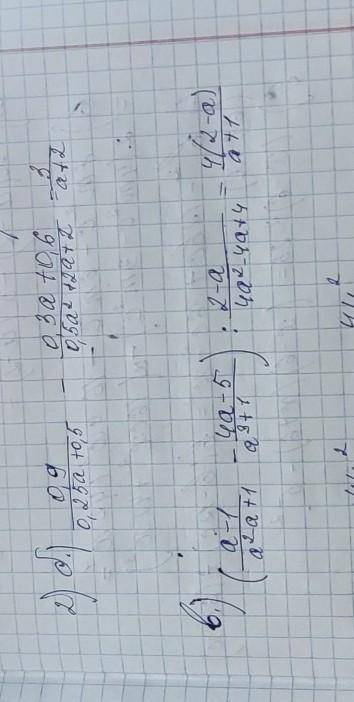 2) б.) 0,9/(0,25a+0,5) - (0,3a+0,6)/(0,5a²+2a+2) = 3/(a+2)
в.) ((a-1)/(a²a+1) - (4a-5)/(a³+1)) : (2-a)/(4a²-4a+4) = 4(2-a)/(a+1)